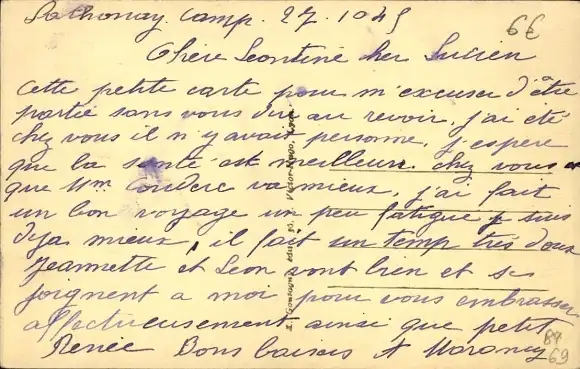 Sathonay Camp. 27.10.45
6€
Chère Leontine cher Lucien
Cette petite carte pour m'excuser d'être
partie sans vous dire au revoir, j'ai été
chez vous il n'y avait personne, j'espere
que la santé est meilleure chez vous
que Mm Couderc va mieux, j'ai fait
un bon voyage un peu fatigué je suis
deja mieux, il fait un temp très doux
Jeannette et Leon vont bien et se
joignent a moi pour vous embrasser
affectueusement ainsi que petit
Renée Bons baisers A
69